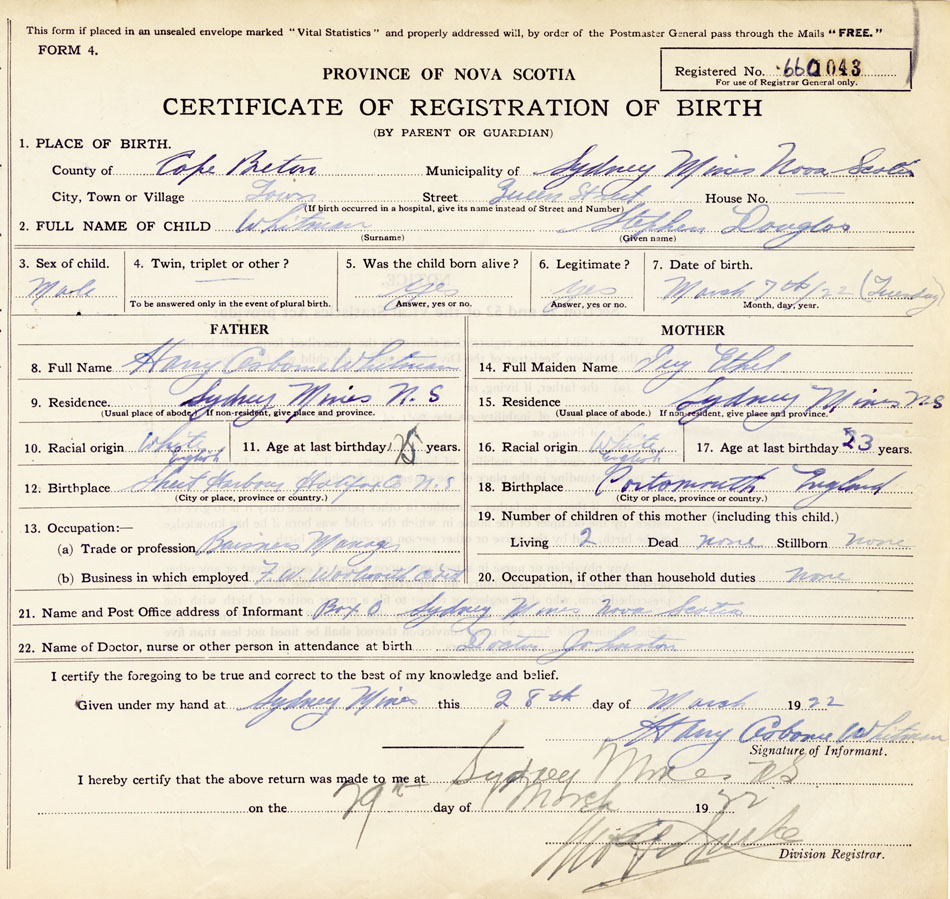 This form if placed in an unsealed envelope marked "Vital Statistics" and properly addressed will, by order of the Postmaster General pass through the Mails "FREE."
FORM 4.
PROVINCE OF NOVA SCOTIA
Registered No. 660 1043
For use of Registrar General only.
CERTIFICATE OF REGISTRATION OF BIRTH
(BY PARENT OR GUARDIAN)
1. PLACE OF BIRTH.
County of Cape Breton Municipality of Sydney Mines Nova Scotia
City, Town or Village Town Street Queen Street House No. —
(If birth occurred in a hospital, give its name instead of Street and Number)
2. FULL NAME OF CHILD Whitman Stephen Douglas
(Surname) (Given name)
3. Sex of child. 4. Twin, triplet or other ? 5. Was the child born alive ? 6. Legitimate ? 7. Date of birth.
Male — Yes Yes March 7th/22 (Tuesday)
To be answered only in the event of plural birth. Answer, yes or no. Answer, yes or no. Month, day, year.
FATHER MOTHER
8. Full Name Harry Osborne Whitman 14. Full Maiden Name Ivy Ethel
9. Residence. Sydney Mines N.S 15. Residence Sydney Mines N S
(Usual place of abode.) If non-resident, give place and province. (Usual place of abode.) If non-resident, give place and province.
10. Racial origin White English 11. Age at last birthday 25 years. 16. Racial origin White English 17. Age at last birthday 23 years.
12. Birthplace Sheet Harbour Halifax Co N.S 18. Birthplace Portsmouth England
(City or place, province or country.) (City or place, province or country.)
13. Occupation:— 19. Number of children of this mother (including this child.)
(a) Trade or profession Business Manager Living 2 Dead none Stillborn none
(b) Business in which employed F. W. Woolworth 20. Occupation, if other than household duties none
21. Name and Post Office address of Informant Box O Sydney Mines Nova Scotia
22. Name of Doctor, nurse or other person in attendance at birth Doctor Johnston
I certify the foregoing to be true and correct to the best of my knowledge and belief.
Given under my hand at Sydney Mines this 28th day of March 1922
Harry Osborne Whitman
Signature of Informant.
I hereby certify that the above return was made to me at Sydney Mines NS
on the 29th day of March 1922
Division Registrar.